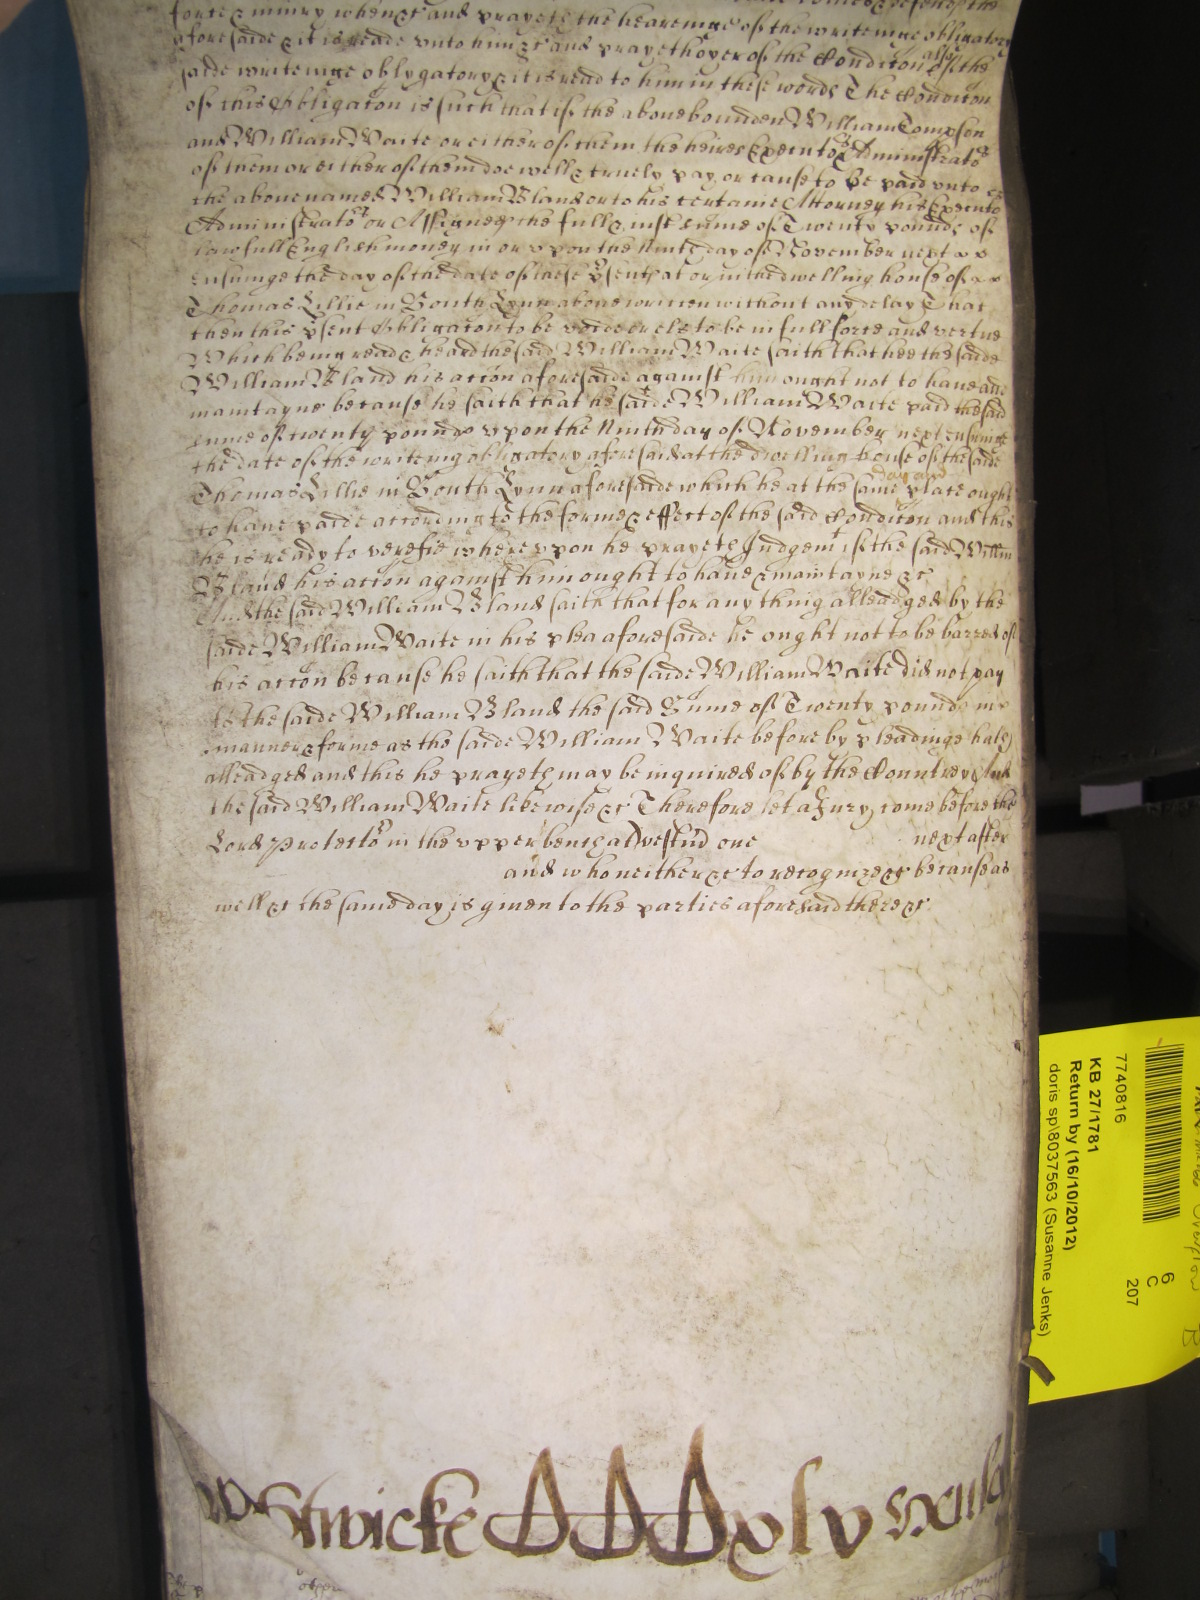 force & iniury when &c and prayeth the heareinge of the writeinge obligatory
aforesaide & it is reade vnto him &c and prayeth oyer of the Condicon also of the
saide writeinge oblygatory & it is read to him in these words The Condicon
of this Obligacon is such that if the abovebounden William Tompson
and William Waite or either of them the heires Executors Administrators
of them or either of them doe well & truely pay or cause to be paid vnto
the abovenamed William Bland or to his certaine Attorney his Executors
Administrators or Assignes the full & iust sume of Twenty pounds of
lawfull English money in or vpon the Ninth day of November next
ensuinge the day of the date of these psents at or in the dwelling house of
Thomas Lillie in South Lynn above written without any delay That
then this psent Obligacon to be voide or els to be in full force and vertue
Which being read & heard the said William Waite saith that hee the saide
William Bland his accon aforesaide against him ought not to have and
maintayne because he saith that he saide William Waite paid the said
sume of twenty pounds vpon the Ninth day of November next ensuinge
the date of the writeing obligatory aforesaid at the dwelling house of the saide
day and
Thomas Lillie in South Lynn aforesaide which he at the same place ought
to have paide according to the forme & effect of the said Condicon and this
he is ready to verefie wherevpon he prayeth Judgemt if the said Willm
Bland his accon against him ought to have & maintayne &c
And the said William Bland saith that for any thing alleadged by the
saide William Waite in his plea aforesaide he ought not to be barred of
his accon because he saith that the saide William Waite did not pay
to the saide William Bland the said Sume of Twenty pounds in
manner & forme as the saide William Waite before by pleadinge hath
alleadged and this he prayeth may be inquired of by the Countrey And
the said William Waite likewise &c Therefore let a Jury come before the
Lord Protector in the vpper bench at Westmd one next after
and who neither &c to recognize &c because as
well &c the same day is given to the parties aforesaid there &c
xlv
7740816
KB 27/1781
Return by (16/10/2012)
doris sp\8037563 (Susanne Jenks)
6
C
207